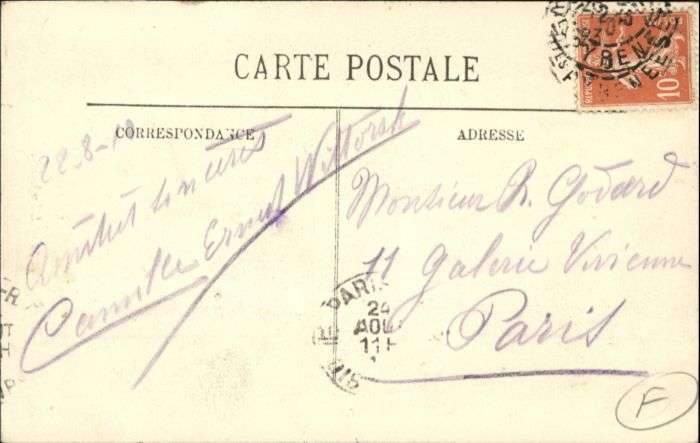 CARTE POSTALE
CORRESPONDANCE
ADRESSE
22-8-
Amitiés sincères
Camille Ernest Wittorsk
Monsieur R. Godard
11 Galerie Vivienne
Paris
PARIS
24
AOU
11
10
F